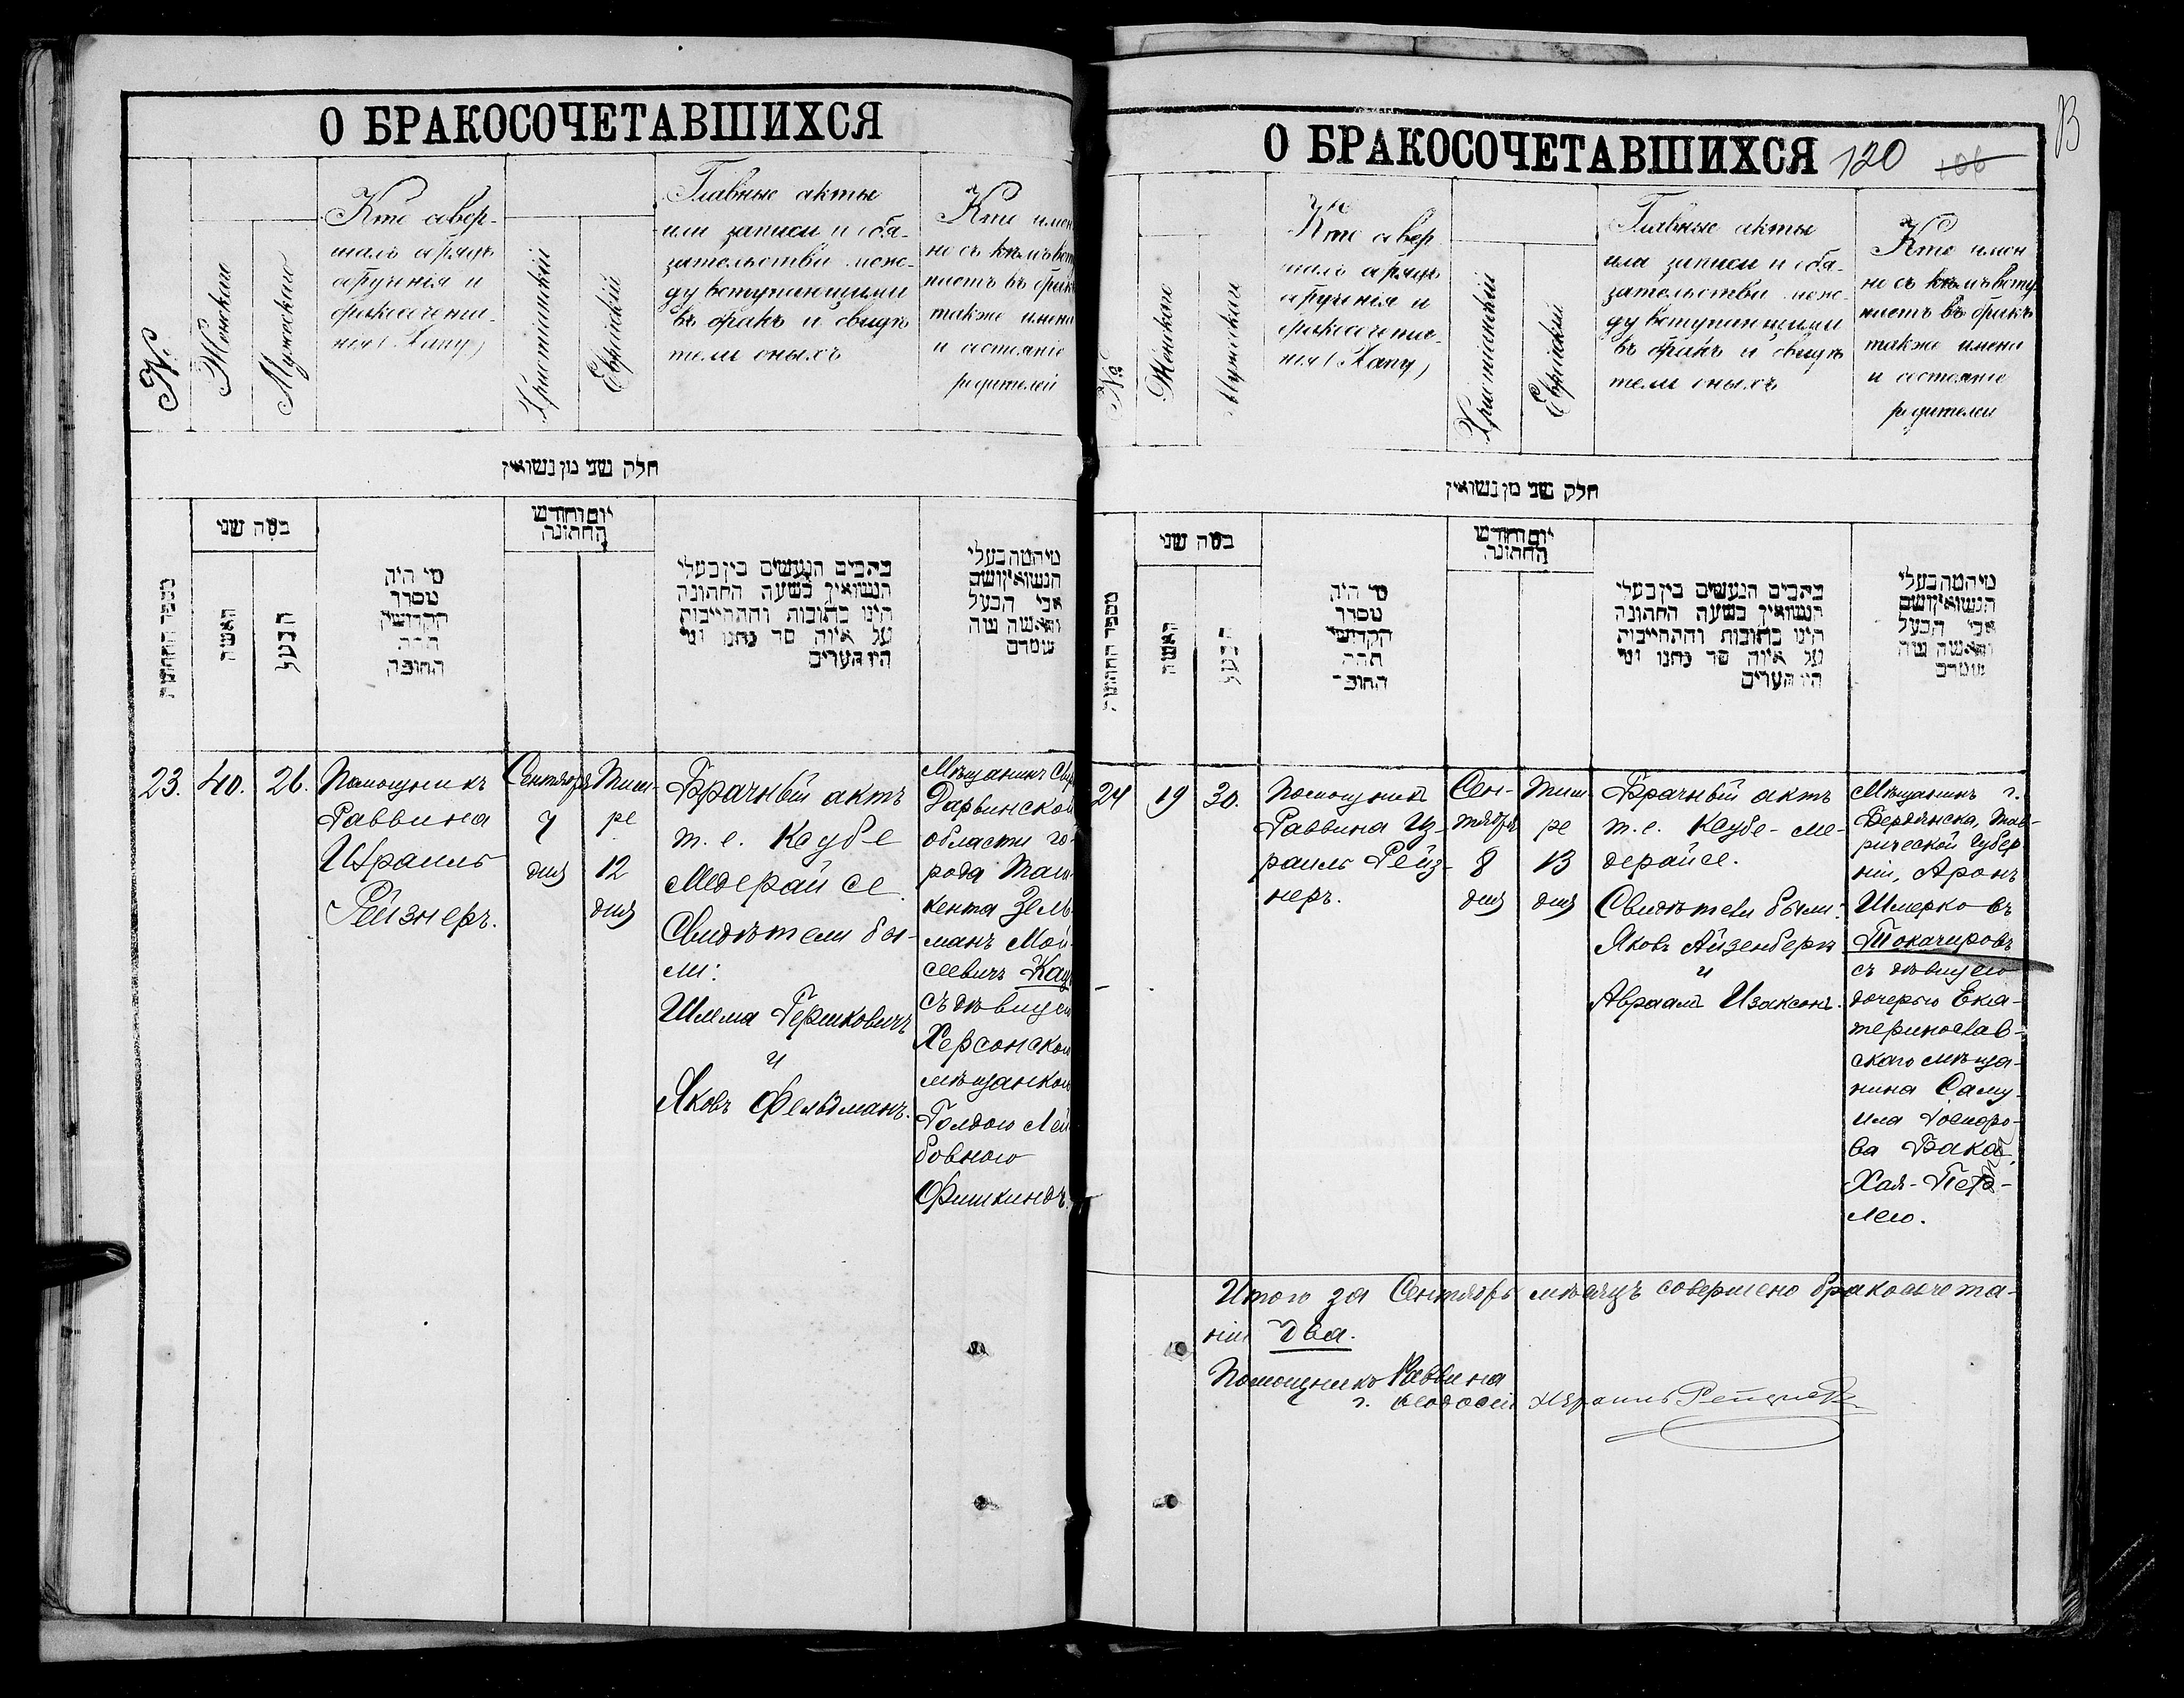 О БРАКОСОЧЕТАВШИХСЯ
№
Женскаго
Мужескаго
Кто совер-
шалъ обрядъ
обрученія и
бракосочета-
нія (Хупу)
Христіанскій
Еврейскій
Главные акты
или записи и обя-
зательства меж-
ду вступающими
въ бракъ и свидѣ
тели оныхъ
Кто имен
но съ кѣмъ всту
паетъ въ бракъ
также имена
и состояніе
родителей
חלק שני מן נשואין
מספר החתונות
במה שני
האשה
הבעל
מי היה
מסדר
הקדושין
תחת
החופה
יום וחודש
החתונה
כתבים הנעשים בין בעלי
הנשואין בשעה החתונה
היינו כתובות והתחייבות
על איזה סך נתנו ומי
היו העדים
מי המה בעלי
הנשואין ושם
אבי הבעל
והאשה מה
עומדם
23.
40.
26.
Помощникъ
Раввина
Израиль
Рейзнеръ.
Сентября
7
дня
Тиш-
ре
12
дня
Брачный актъ
т. е. Ксубе
Медерайсе.
Свидѣтели бы-
ли:
Шлема Гершковичъ
и
Яковъ Фельдманъ.
Мѣщанинъ Сыр
Дарьинской
области го-
рода Таш-
кента Зель-
манъ Мой-
сеевичъ Кац
съ дѣвицей
Херсонской
мѣщанкой
Голдою Лей
бовною
Фишкиндъ.
О БРАКОСОЧЕТАВШИХСЯ 120 106
В
№
Женскаго
Мужескаго
Кто совер
шалъ обрядъ
обрученія и
бракосочета-
нія (Хупу)
Христіанскій
Еврейскій
Главные акты
или записи и обя-
зательства меж-
ду вступающими
въ бракъ и свидѣ
тели оныхъ
Кто имен
но съ кѣмъ всту
паетъ въ бракъ
также имена
и состояніе
родителей
חלק שני מן נשואין
מספר החתונות
במה שני
האשה
הבעל
מי היה
מסדר
הקדושי
תחת
החופ
יום וחודש
החתונה
כתבים הנעשים בין בעלי
הנשואין בשעה החתונה
היינו כתובות והתחייבות
על איזה סך נתנו ומי
היו העדים
מי המה בעלי
הנשואין ושם
אבי הבעל
והאשה מה
עומדם
24
19
30.
Помощникъ
Раввина Из-
раиль Рейз-
неръ.
Сен-
тября
8
дня
Тиш
ре
13
дня
Брачный актъ
т. е. Ксубе-ме-
дерайсе.
Свидѣтели были:
Яковъ Айзенбергъ
и
Авраамъ Изаксонъ.
Мѣщанинъ г.
Бердянска, Тав-
рической Губер
ніи, Аронъ
Шмерковъ
Токачировъ
съ дѣвицею
дочерью Ека-
теринослав-
скаго мѣща-
нина Саму-
ила
ва Бака,
Хая-Пер-
лею.
Итого за Сентябрь мѣсяцъ совершено бракосочета-
ній два.
Помощникъ Раввина
г. Ѳеодосіи Израиль Рейзнеръ